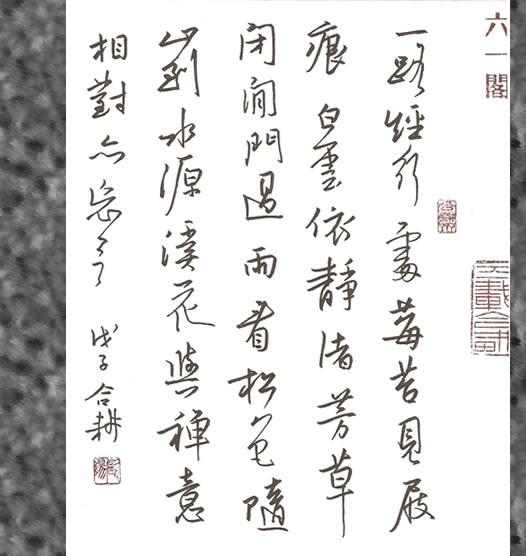 六一閣
一路經行處莓苔見屐
痕白雲依靜渚芳草
閉閒門過雨看松色隨
山到水源溪花與禪意
相對亦忘言 戊子合耕